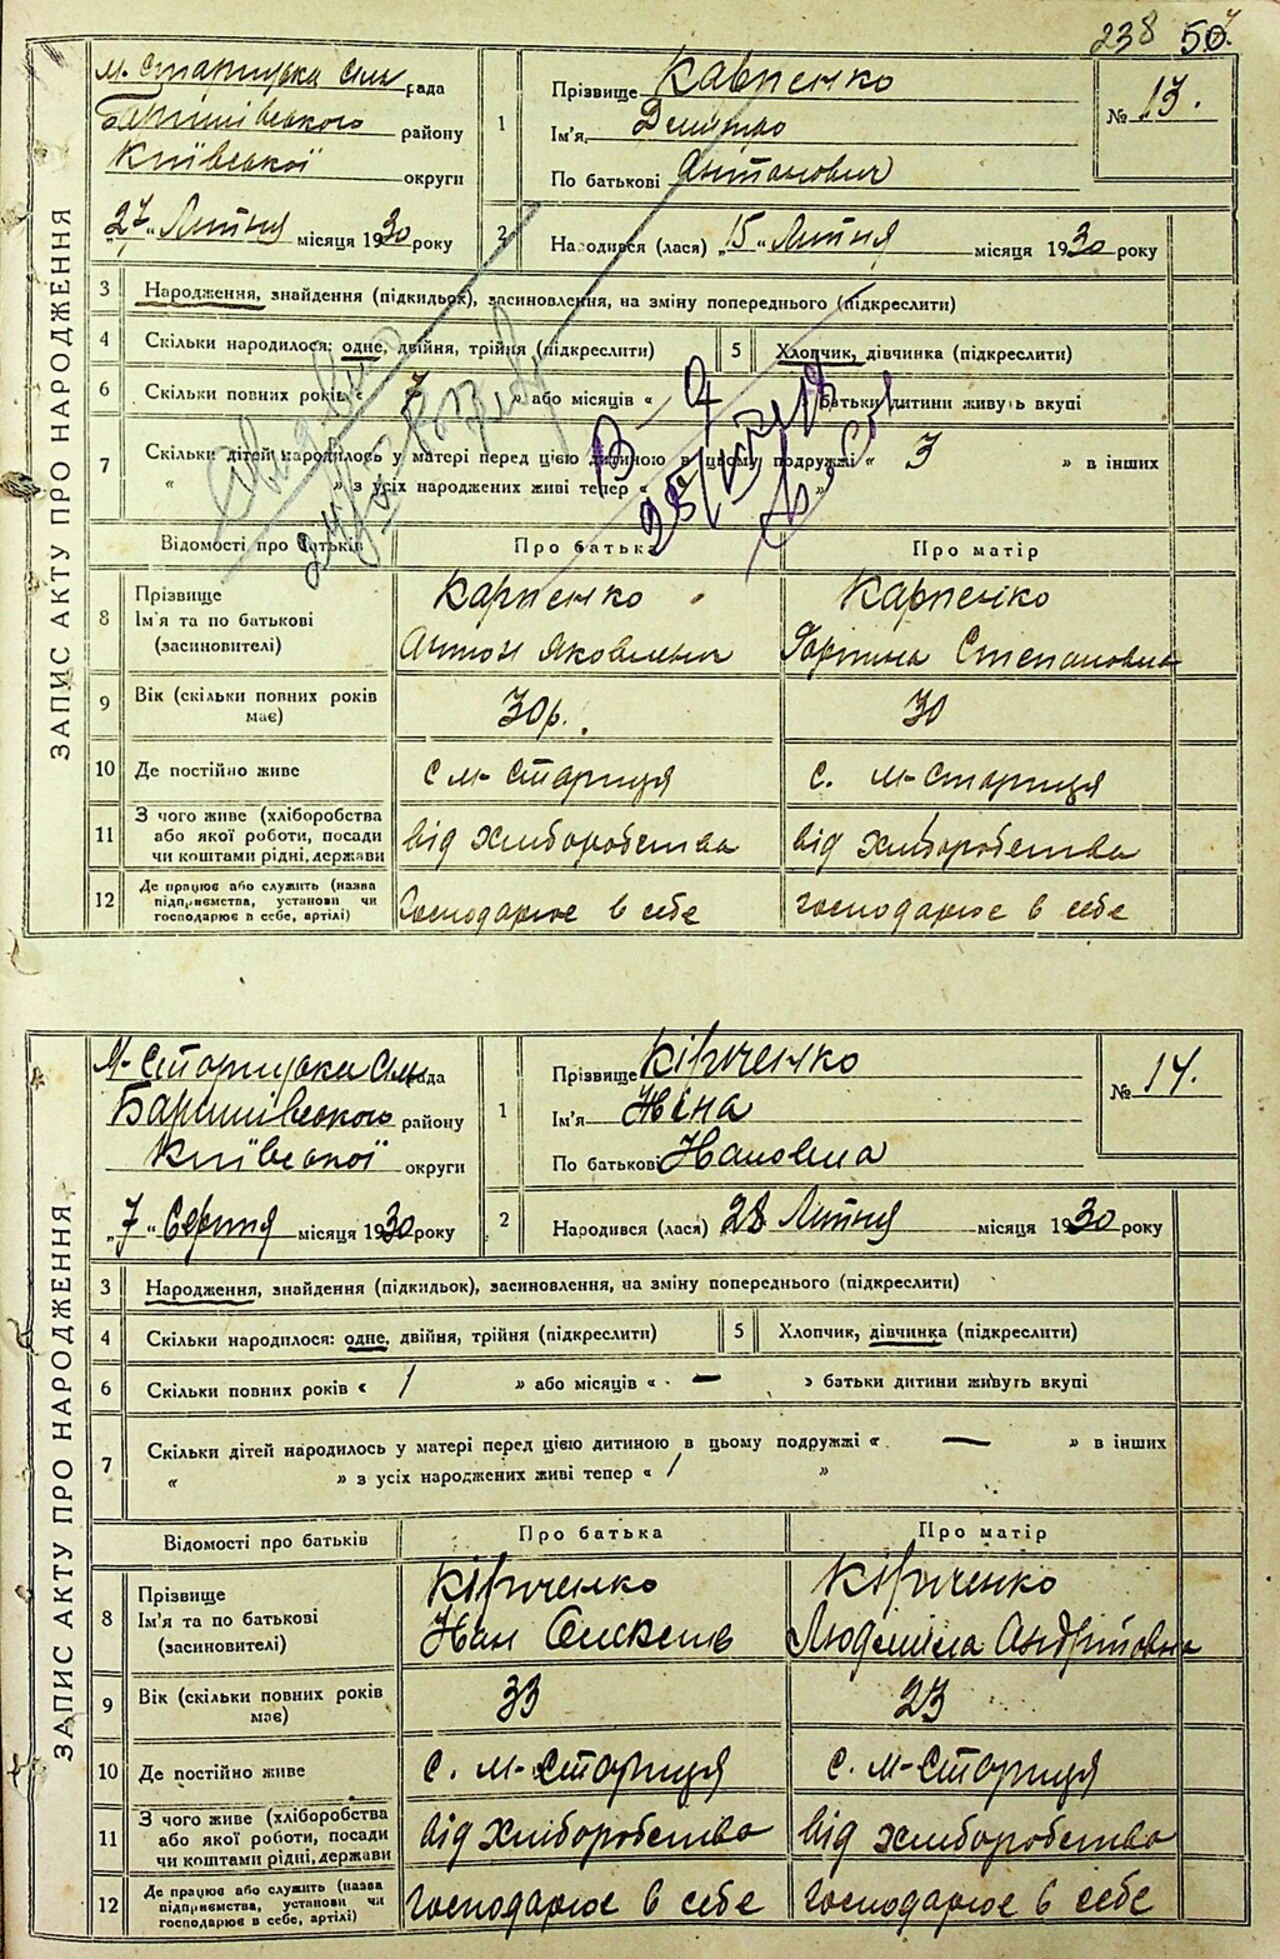 238 50
ЗАПИС АКТУ ПРО НАРОДЖЕННЯ
М. Старицька Сіль рада
Баришівського району
Київської округи
„27“ Липня місяця 1930 року
1
Прізвище Карпенко
Ім'я Дмитро
По батькові Антонович
№ 13.
2 Народився (лася) „15“ Липня місяця 1930 року
3 Народження, знайдення (підкидьок), засиновлення, на зміну попереднього (підкреслити)
4 Скільки народилося: одне, двійня, трійня (підкреслити) 5 Хлопчик, дівчинка (підкреслити)
6 Скільки повних років « 7 » або місяців « » батьки дитини живуть вкупі
7 Скільки дітей народилось у матері перед цією дитиною в цьому подружжі « 3 » в інших
« » з усіх народжених живі тепер « »
Відомості про батьків Про батька Про матір
8 Прізвище Карпенко Карпенко
Ім'я та по батькові
(засиновителі) Антон Яковлевич Степановна
9 Вік (скільки повних років має) 30р. 30
10 Де постійно живе с м-Стариця с. м-Стариця
11 З чого живе (хліборобства або якої роботи, посади чи коштами рідні, держави від хліборобства від хліборобства
12 Де працює або служить (назва підприємства, установи чи господарює в себе, артілі) Господарює в себе господарює в себе
ЗАПИС АКТУ ПРО НАРОДЖЕННЯ
М-Старицька Сіль рада
Баришівського району
Київської округи
„7“ Серпня місяця 1930 року
1
Прізвище Кірченко
Ім'я Ніна
По батькові Івановна
№ 14.
2 Народився (лася) 28 Липня місяця 1930 року
3 Народження, знайдення (підкидьок), засиновлення, на зміну попереднього (підкреслити)
4 Скільки народилося: одне, двійня, трійня (підкреслити) 5 Хлопчик, дівчинка (підкреслити)
6 Скільки повних років « 1 » або місяців « — » батьки дитини живуть вкупі
7 Скільки дітей народилось у матері перед цією дитиною в цьому подружжі « — » в інших
« » з усіх народжених живі тепер « 1 »
Відомості про батьків Про батька Про матір
8 Прізвище Кірченко Кірченко
Ім'я та по батькові
(засиновителі) Іван Людмила
9 Вік (скільки повних років має) 33 23
10 Де постійно живе с. м-Стариця с. м-Стариця
11 З чого живе (хліборобства або якої роботи, посади чи коштами рідні, держави від хліборобства від хліборобства
12 Де працює або служить (назва підприємства, установи чи господарює в себе, артілі) господарює в себе господарює в себе